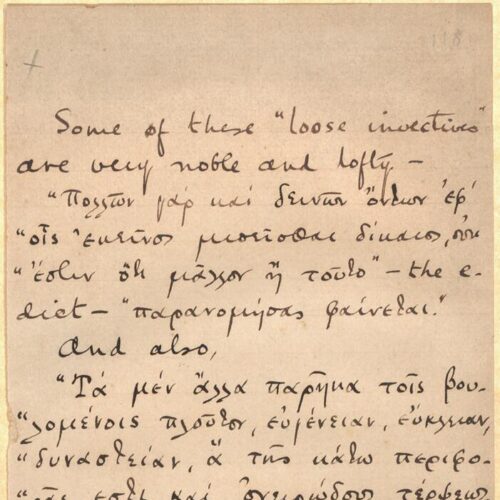 118
Some of these "loose invectives"
are very noble and lofty. —
"Πολλῶν γὰρ καὶ δεινῶν ὄντων ἐφ'
"οἷς ἐκεῖνος μισεῖσθαι δίκαιος, οὐκ
"ἔστιν ὅτι μᾶλλον ἢ τοῦτο" — the e-
dict — "παρανομήσας φαίνεται."
And also,
"Τὰ μὲν ἄλλα παρῆκα τοῖς βου-
"λομένοις πλοῦτον, εὐγένειαν, εὔκλειαν,
"δυναστείαν, ἃ τῆς κάτω περιφο-
"ρᾶς ἐστι καὶ ὀνειρώδους τέρψεως